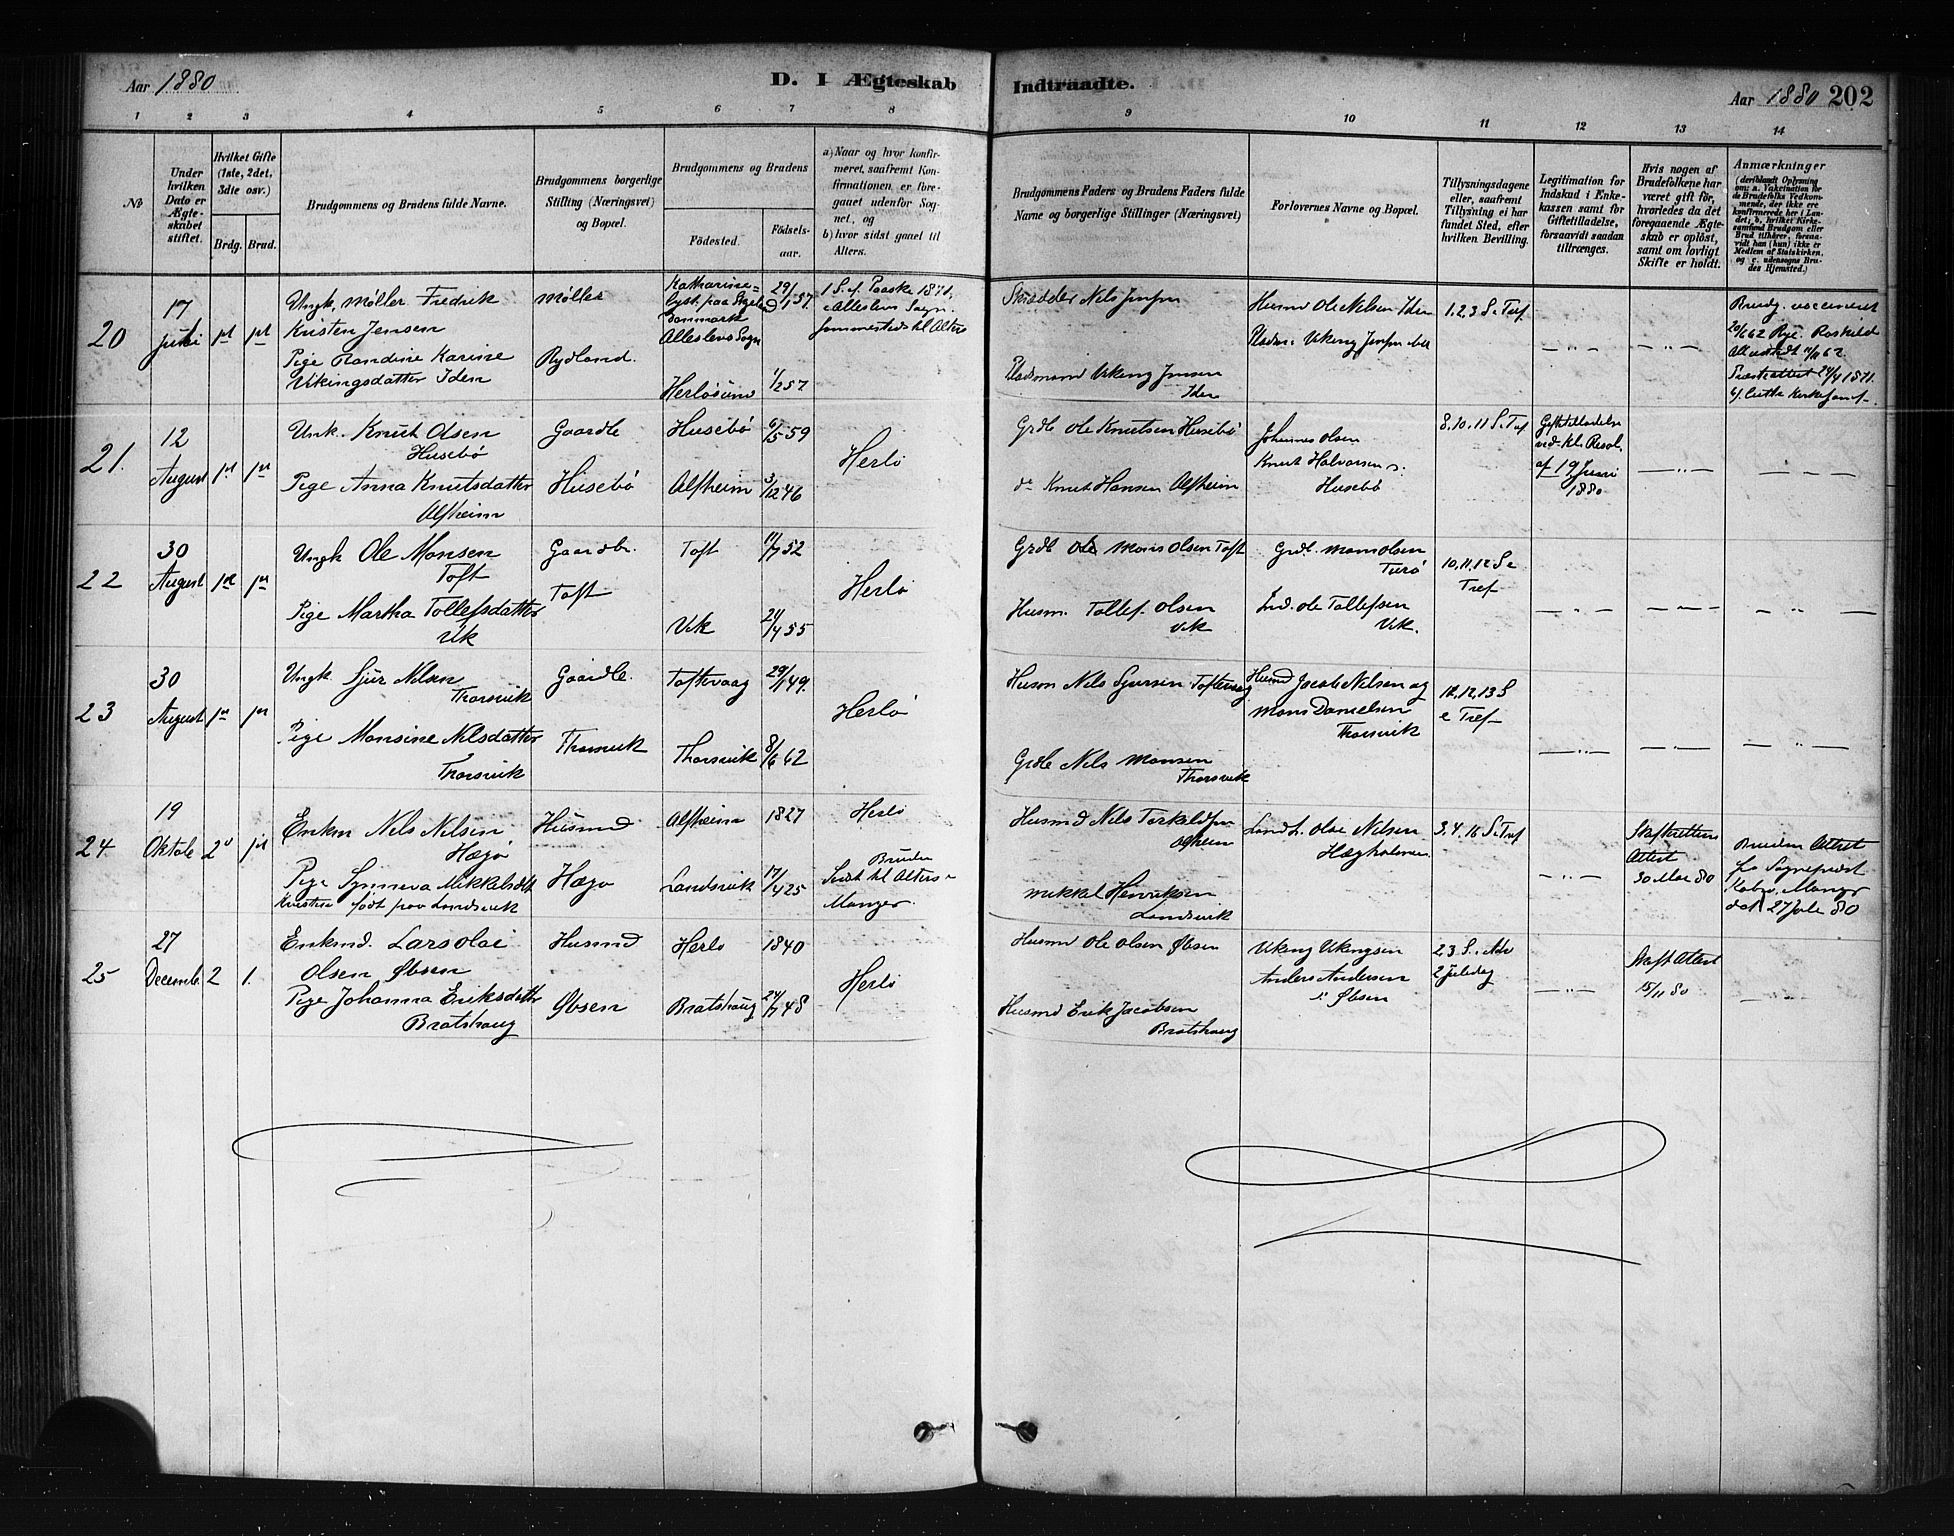 Aar 1880
D. I Ægteskab
Indtraadte.
Aar 1880 202
1 2 3 4 5 6 7 8 9 10 11 12 13 14
No
Under hvilken Dato er Ægteskabet stiftet.
Hvilket Gifte (1ste, 2det, 3die osv.)
Brdg. Brud.
Brudgommens og Brudens fulde Navne.
Brudgommens borgerlige Stilling (Næringsvei) og Bopæl.
Brudgommens og Brudens
Fødested.
Fødselsaar.
a) Naar og hvor konfirmeret, saafremt Konfirmationen er foregaaet udenfor Sognet, og
b) hvor sidst gaaet til Alters.
Brudgommens Faders og Brudens Faders fulde Navne og borgerlige Stillinger (Næringsvei)
Forlovernes Navne og Bopæl.
Tillysningsdagene eller, saafremt Tillysning ei har fundet Sted, efter hvilken Bevilling.
Legitimation for Indskud i Enkekassen samt for Giftetilladelse, forsaavidt saadan tiltrænges.
Hvis nogen af Brudefolkene har været gift før, hvorledes da det foregaaende Ægteskab er opløst, samt om lovligt Skifte er holdt.
Anmærkninger
(deriblandt Oplysning om: a. Vakcination for de Brudefolks Vedkommende, der ikke ere konfirmerede her i Landet; b. hvilket Kirkesamfund Brudgom eller Brud tilhører, forsaavidt han (hun) ikke er Medlem af Statskirken, og c. udensogns Brudes Hjemsted.)
20
17
juli
1st 1st
Ungk. Møller Fredrik
Kristen Jensen
Pige Randine Karine
Vikingsdatter Iden
Møller
Rydland.
Katharine=
lyst paa Sjæland
Danmark
Allerslevs Sogn
Herløsund
29/1 57
1/2 57
1 S. e. Paaske 1871
i Allerslev Sogn.
sammesteds til Alters
Skrædder Nels Jensen
Pladsmand Viking Jensen
Iden
Husmd Ole Nelsen Iden
Pladsm. Viking Jensen
1.2.3 S. e. Tref
— " —
— " —
Brudg. vaccineret
20/6 62 Rye. Roskild
4/4 1871.
21.
12
August
1st 1st
Unk. Knut Olsen
Husebø
Pige Anna Knutsdatter
Alfheim
Gaardbr
Husebø
Husebø
Alfheim
6/5 59
3/12 46
Herlø
Grdb Ole Knutsen Husebø
do Knut Hansen Alfheim
Johannes Olsen
Knut Halvorsen
Husebø
8.10.11 S. e. Tref
Giftetilladelse
ved kl. Resol.
af 19 Juni
1880
— " —
— " —
22
30
August
1st 1st
Ungk Ole Monsen
Toft
Pige Martha Tollefsdatter
Vik
Gaardbr.
Toft
Toft
Vik
11/7 52
21/4 55
Herlø
Grdb Mons Olsen Toft
Husm. Tollef Olsen
Vik
Grdb. Mons Olsen
Turø
Ind. Ole Tollefsen
Vik.
10,11,12 S e
Tref
— " —
— " —
— " —
23
30
August
1st 1st
Ungk Sjur Nilsen
Thorsvik
Pige Monsine Nilsdatter
Thorsvik
Gaardbr.
Thorsvik
Toftevaag
Thorsvik
29/1 49.
8/6 62
Herlø
Husm Nils Sjursen Toftevaag
Grdb Nils Monsen
Thorsvik
Husmd Jacob Nilsen og
Mons Danielsen
Thorsvik
12,13 S
e Tref
— " —
— " —
— " —
24.
19
Oktob
2d 1st
Enkm Nels Nilsen
Hægø
Pige Synneva Mikkelsdtr
født paa Landsvik
Husmd
Hægø
Alfheim
Landsvik
1827
17/4 25
Herlø
Bruden
Sidst til Alters
Manger.
Husmd Nils Torkeldsen
Alfheim
Mikkal Henriksen
Landsvik
Landh. Olai Nilsen
Hægholmen
3.4.16 S. e Tref
— " —
Skifteretten
Attest
30 Mai 80
Bruden Attest
fra Sogneprest
Manger
dat 27 Juli 80
25
27
Decemb.
2 1.
Enkmd. Lars Olai
Olsen Øbsen
Pige Johanna Eriksdatter
Bratshaug
Husmd
Øbsen
Herlø
Bratshaug
1840
24/7 48
Herlø
Husm Ole Olsen Øbsen
Husmd Erik Jacobsen
Bratshaug
Viking Vikingsen
Anders Andersen
Øbsen
2.3. S. i Adv
2 Juledag
— " —
Skift Attest
15/11 80
— " —